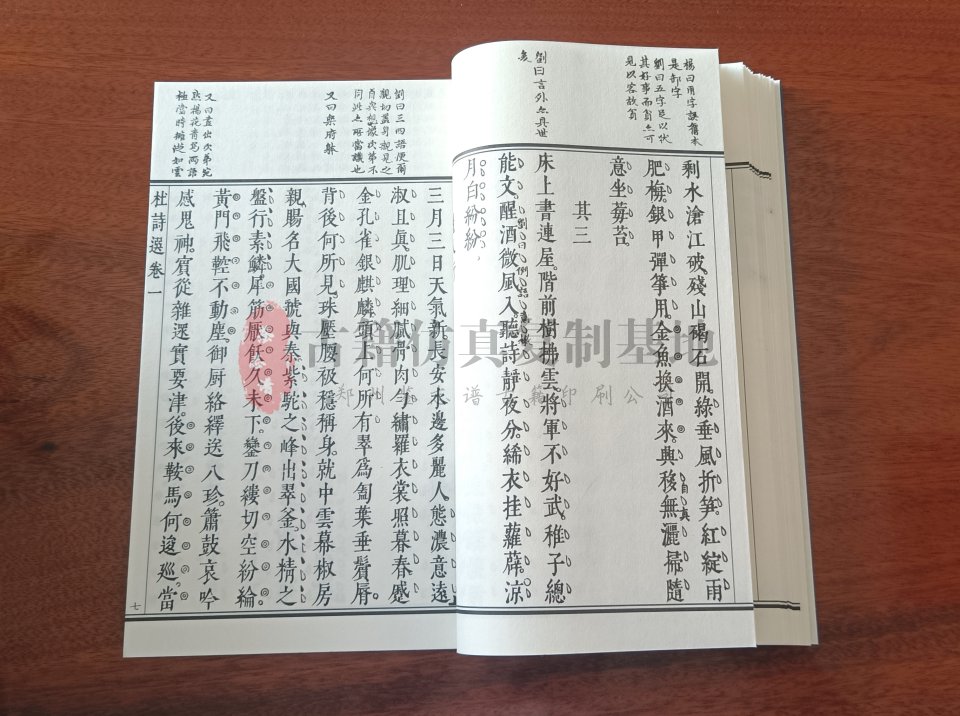 楊曰用字誤舊本
是部字
劉曰五字足以狀
其好事而翁亦可
見以客故翁
劉曰言外亦具世
剩水滄江破。殘山碣石開。綠垂風折笋。紅綻雨
肥梅。銀甲彈箏用。金魚換酒來。興移無灑掃。隨
自真
意坐莓苔。
其三
床上書連屋。階前樹拂雲。將軍不好武。稚子總
能文。醒酒微風入。聽詩靜夜分。絺衣挂蘿薜。涼
月白紛紛。
劉曰三四語便爾
親切蓋身親見之
自與想像次第不
同此亦所當識也
又曰樂府躰
又曰畫出次第宛
然楊花青鳥兩語
極當時擁從如雲
三月三日天氣新長安水邊多麗人態濃意遠
淑且真肌理細膩骨肉勻繡羅衣裳照暮春蹙
金孔雀銀麒麟頭上何所有翠爲㔩葉垂鬢脣。
背後何所見。珠壓腰衱穩稱身。就中雲幕椒房
親。賜名大國虢與秦紫駝之峰出翠釜。水精之
盤行素鱗。犀筯厭飫久未下。鑾刀縷切空紛綸。
黃門飛鞚不動塵。御厨絡繹送八珍。簫鼓哀吟
感鬼神。賓從雜遝實要津。後來鞍馬何逡巡。當
杜詩選卷一
七
古籍仿真复制基地